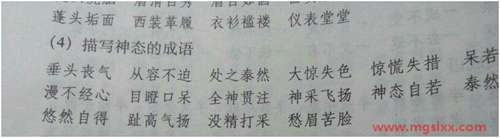 蓬头垢面 西装革履 衣衫褴褛 仪表堂堂
(4) 描写神态的成语
垂头丧气 从容不迫 处之泰然 大惊失色 惊慌失措 呆若
漫不经心 目瞪口呆 全神贯注 神采飞扬 神态自若 泰然
悠然自得 趾高气扬 没精打采 愁眉苦脸
www.mgsixx.com